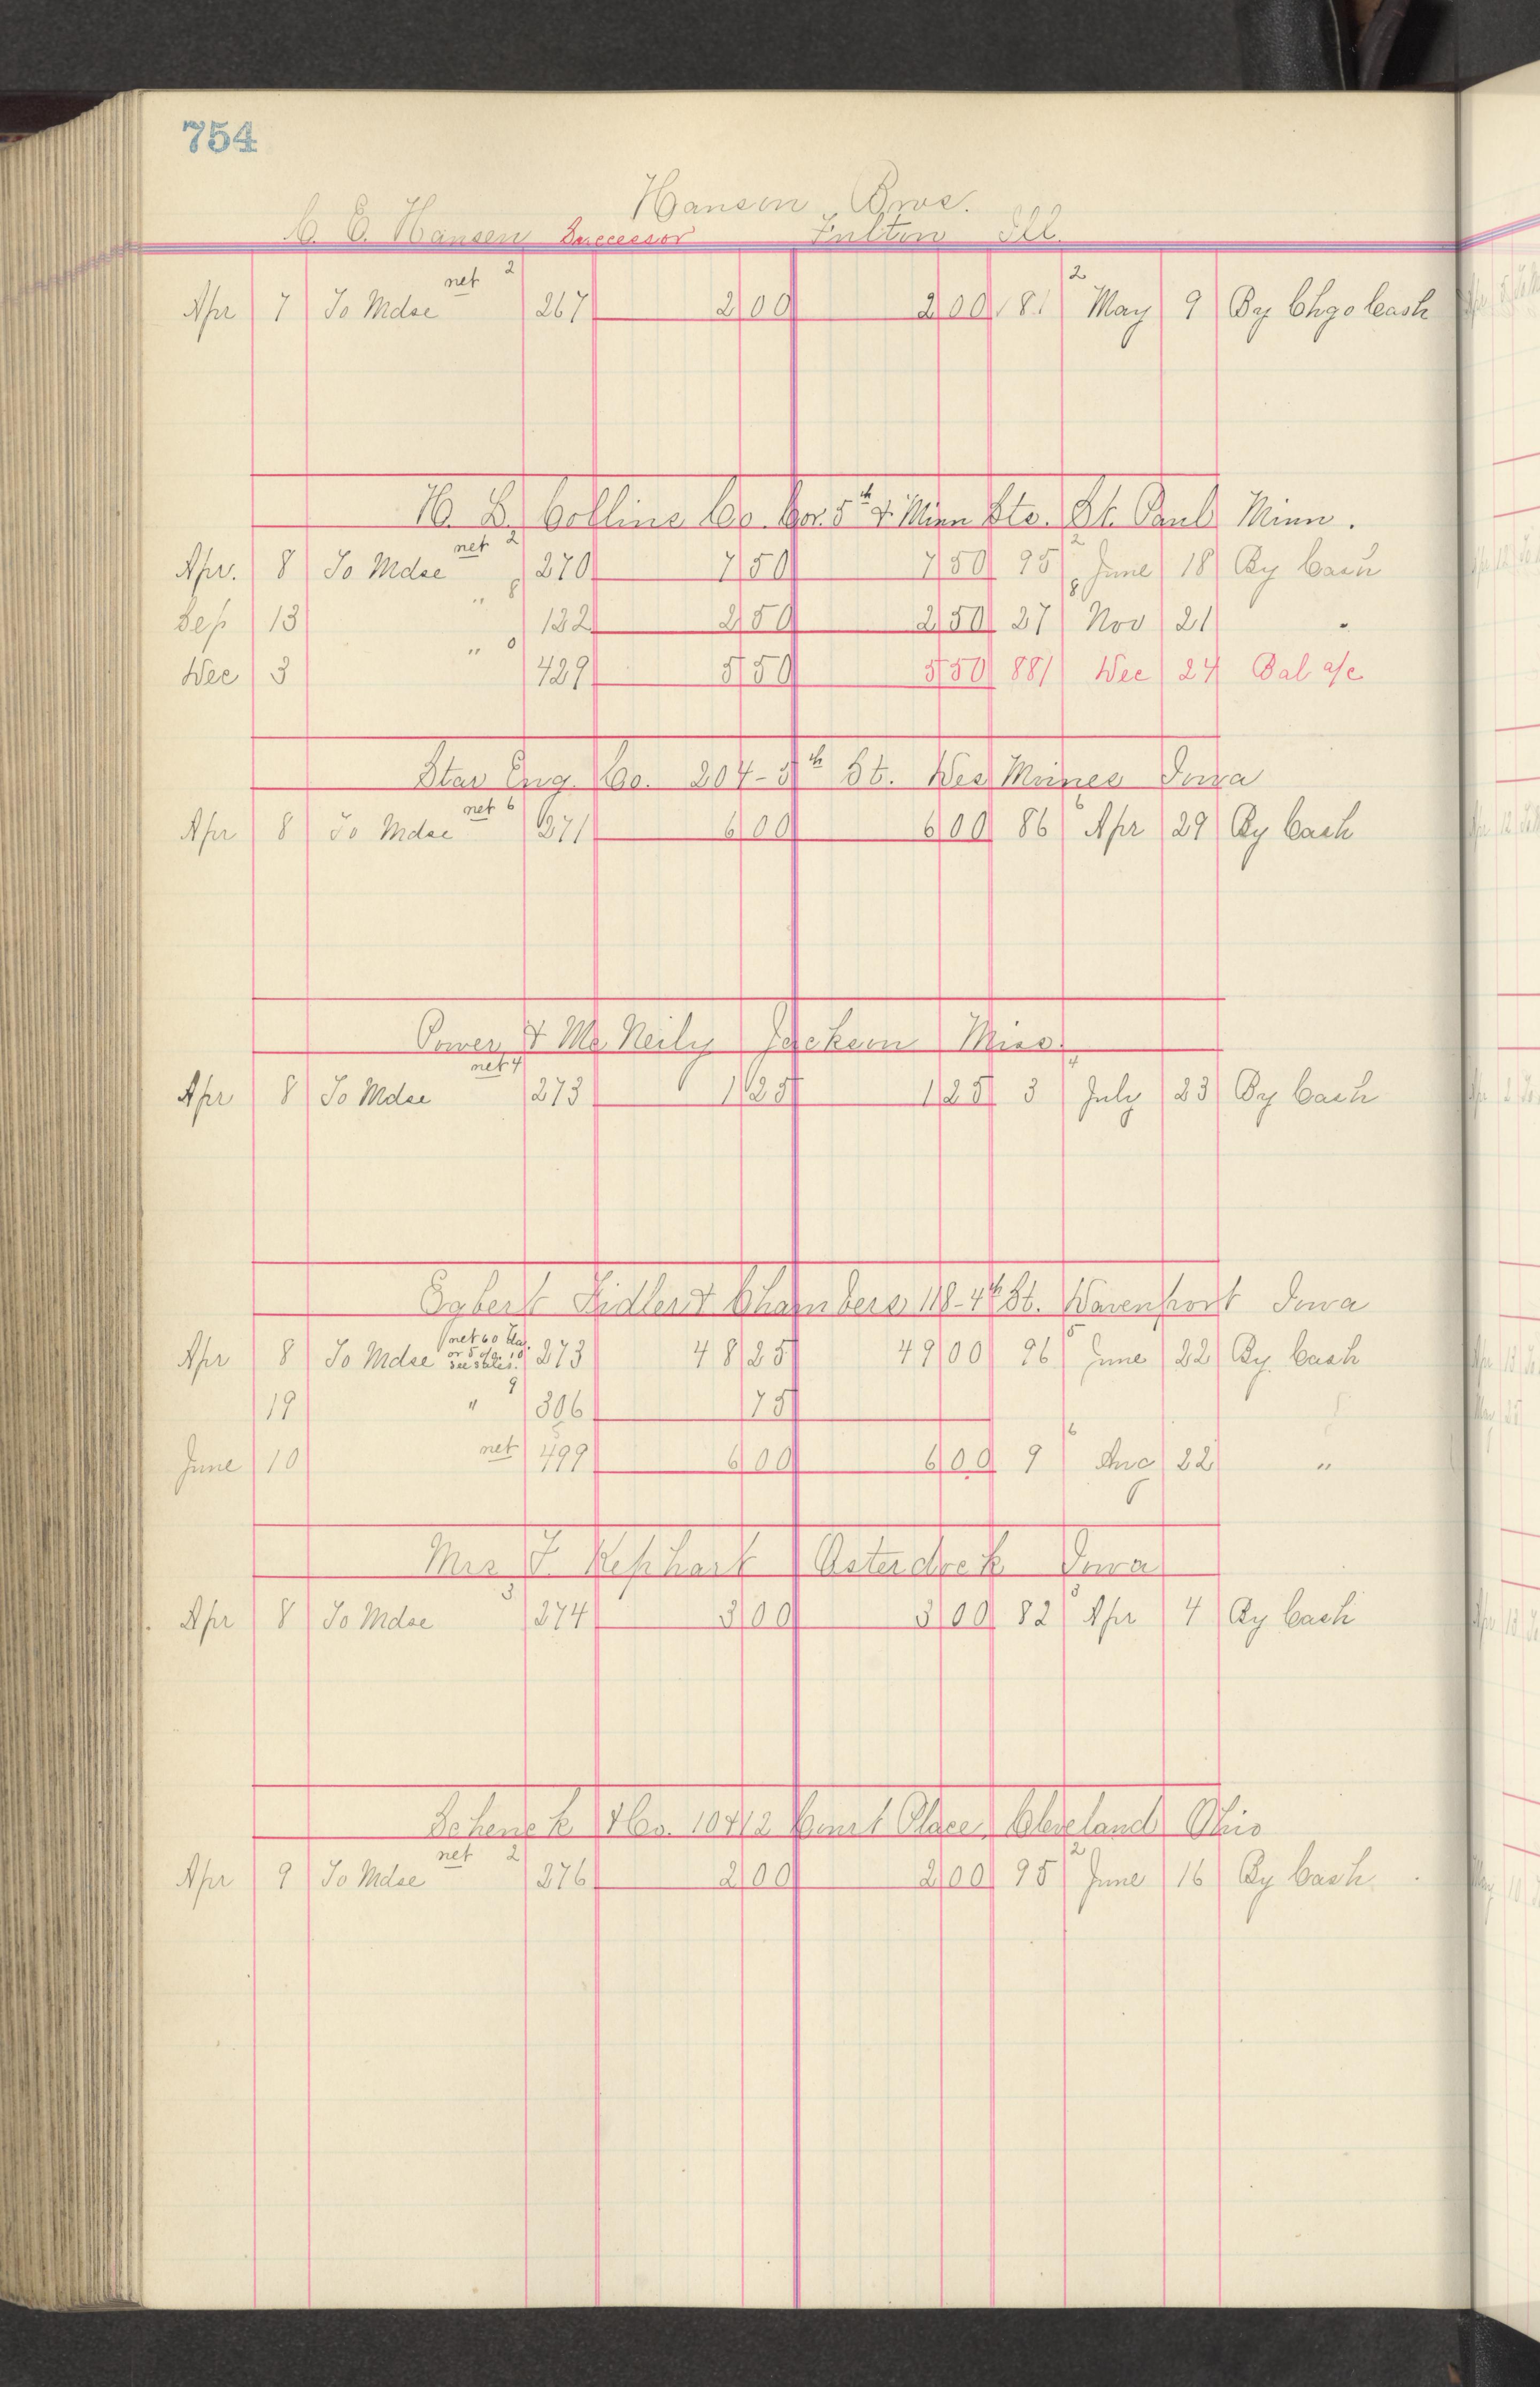 754
Hansen Bros.
C. E. Hansen Successor Fulton Ill.
net 2 2
Apr 7 To Mdse 267 2 00 2 00 81 May 9 By Chgo Cash
H. B. Collins Co. Cor. 5th & Minn Sts. St. Paul Minn.
net 2 2
Apr. 8 To Mdse 270 7 50 7 50 95 June 18 By Cash
Sep 13 " 8 132 2 50 2 50 27 8 Nov 21 "
Dec 3 " 429 5 50 5 50 881 Dec 24 Bal a/c
Star Eng. Co. 204-5th St. Des Moines Iowa
net 6 6
Apr 8 To Mdse 271 6 00 6 00 86 Apr 29 By Cash
Power & McNeily Jackson Miss.
net 4 4
Apr 8 To Mdse 273 1 25 1 25 3 July 23 By Cash
Egbert Fidlar & Chambers 118-4th St. Davenport Iowa
net 60 da.
or 5% 10
see sales.
Apr 8 To Mdse 273 48 25 49 00 96 June 22 By Cash
19 " 9 306 75
June 10 net 499 6 00 6 00 9 6 Aug 22 "
Mrs F. Kephart Osterdock Iowa
3 3
Apr 8 To Mdse 274 3 00 3 00 82 Apr 4 By Cash
Schenck & Co. 104 1/2 Court Place Cleveland Ohio
net 2 2
Apr 9 To Mdse 276 2 00 2 00 95 June 16 By Cash